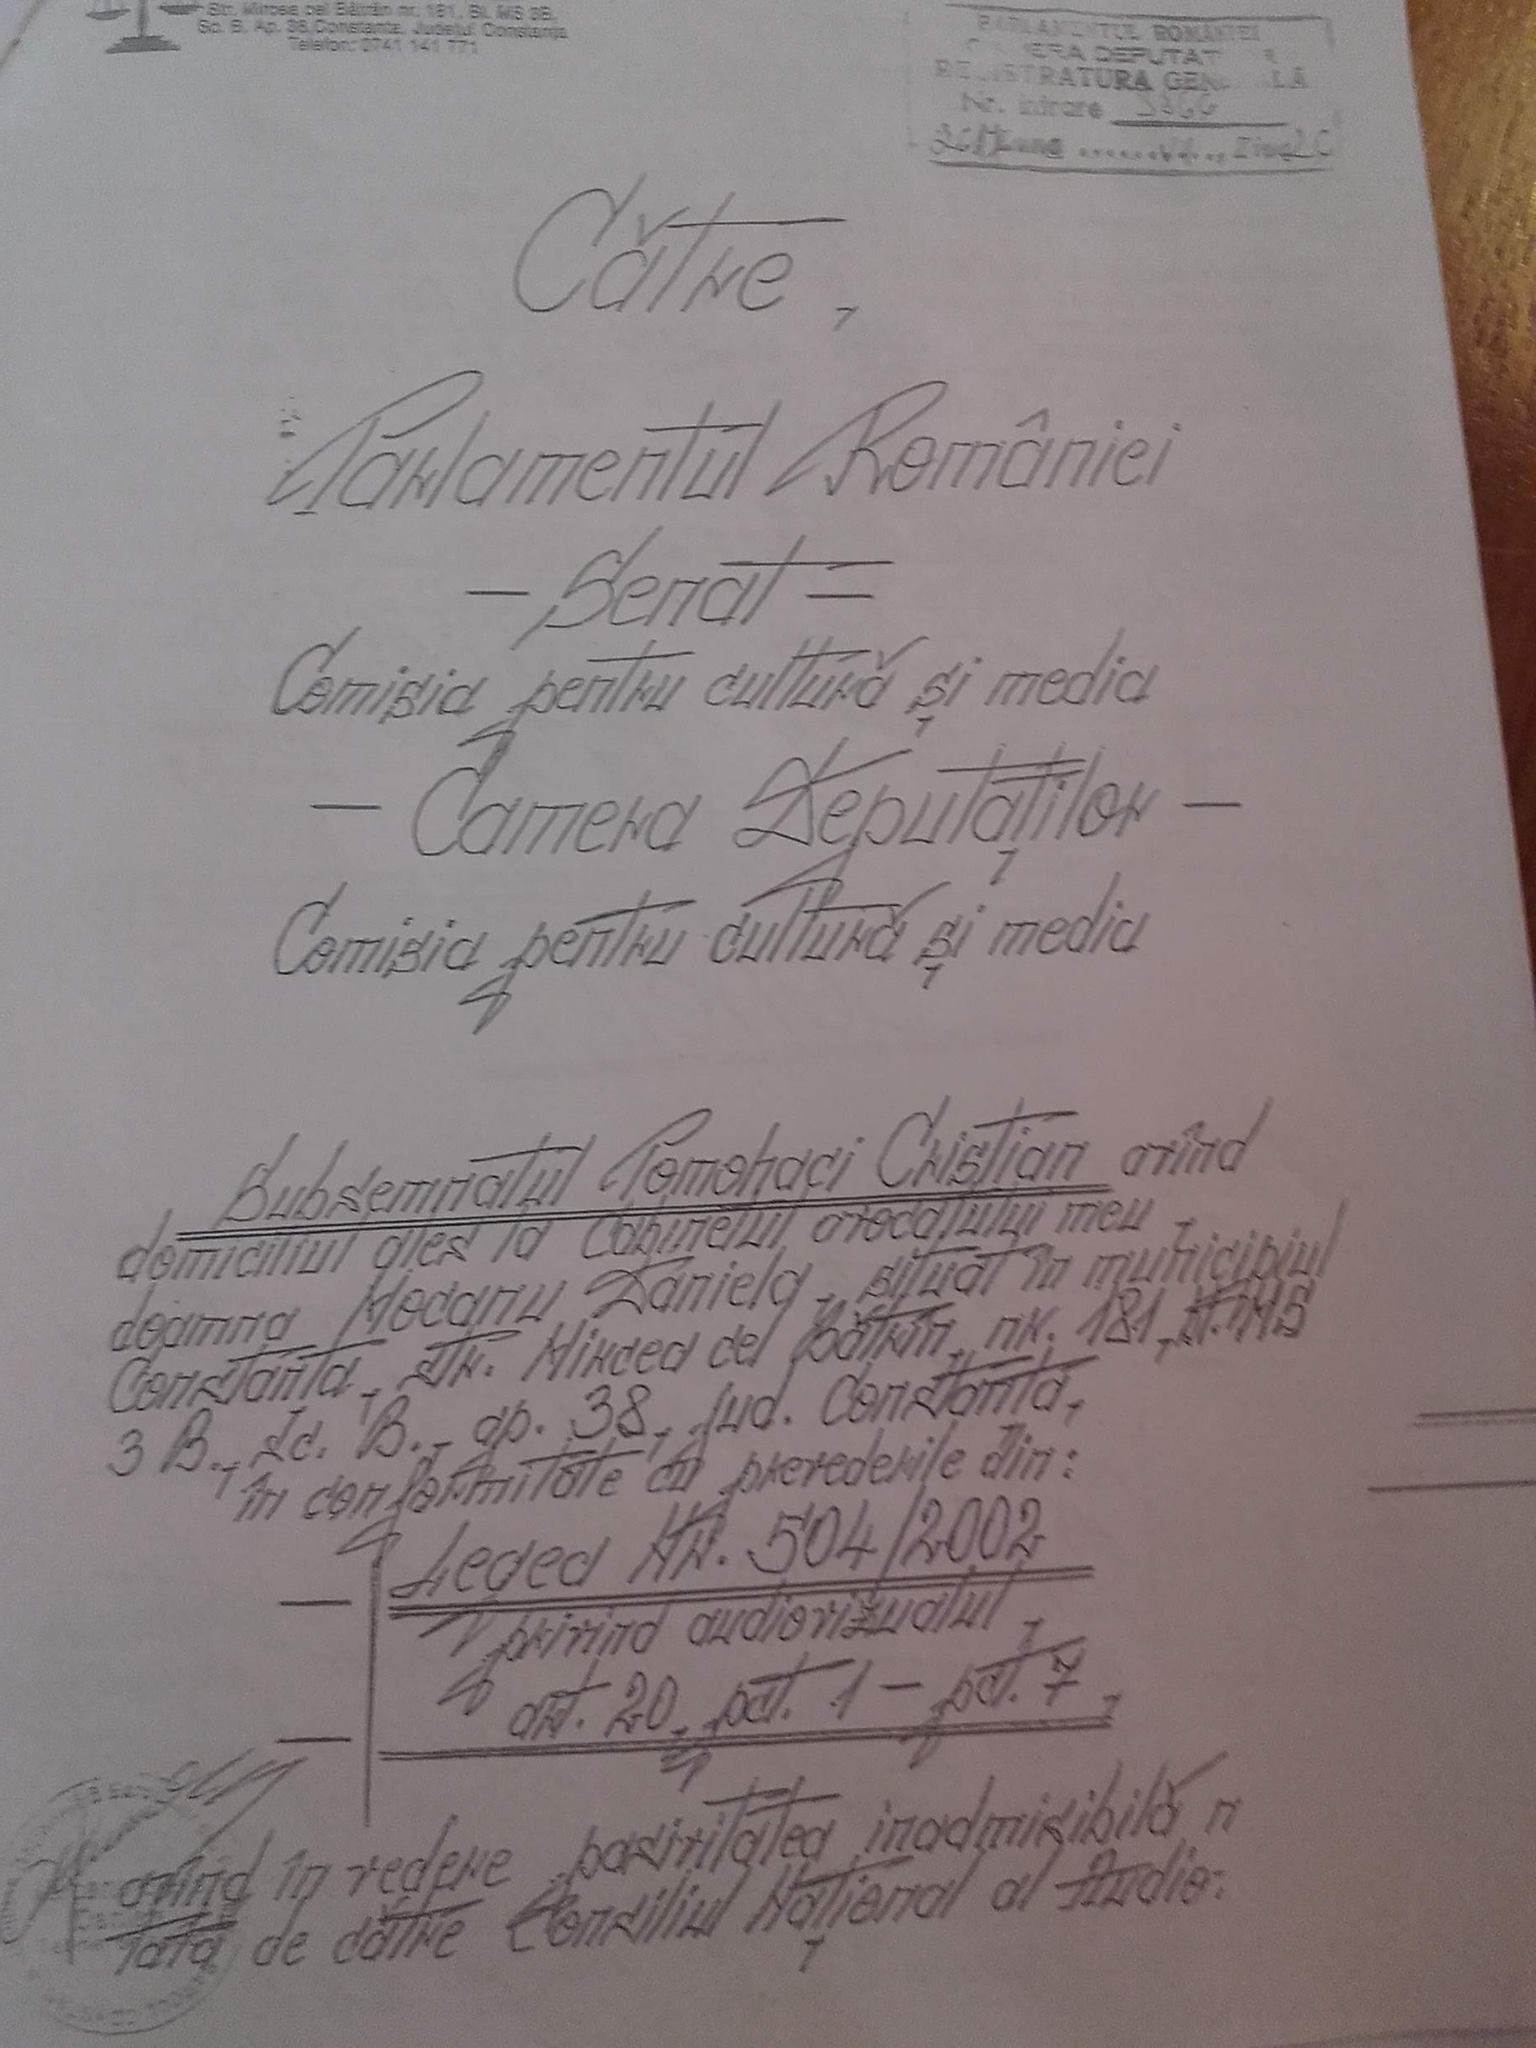 Str. Mircea cel Bătrân nr. 181, Bl. MS 3B,
Sc. B, Ap. 38, Constanta, Judetul Constanta
Telefon: 0741 141 771
PARLAMENTUL ROMÂNIEI
REGISTRATURA GENERALĂ
Nr. intrare
Către,
Parlamentul României
- Senat =
Comisia pentru cultură și media
- Camera Deputaților -
Comisia pentru cultură și media
Subsemnatul Pomohaci Cristian avînd
domiciliul ales la Cabinetul avocatului meu,
doamna Mocanu Daniela, situat în municipiul
Constanta, str. Mircea cel Bătrîn, nr. 181, bl. MS
3 B., Sc. B., ap. 38, jud. Constanta,
în conformitate cu prevederile din:
- Legea Nr. 504/2002
privind audiovizualul,
- art. 20, pct. 1 - pct. 7,
avînd în vedere pasivitatea inadmisibilă
de către Consiliul Național al Audio: